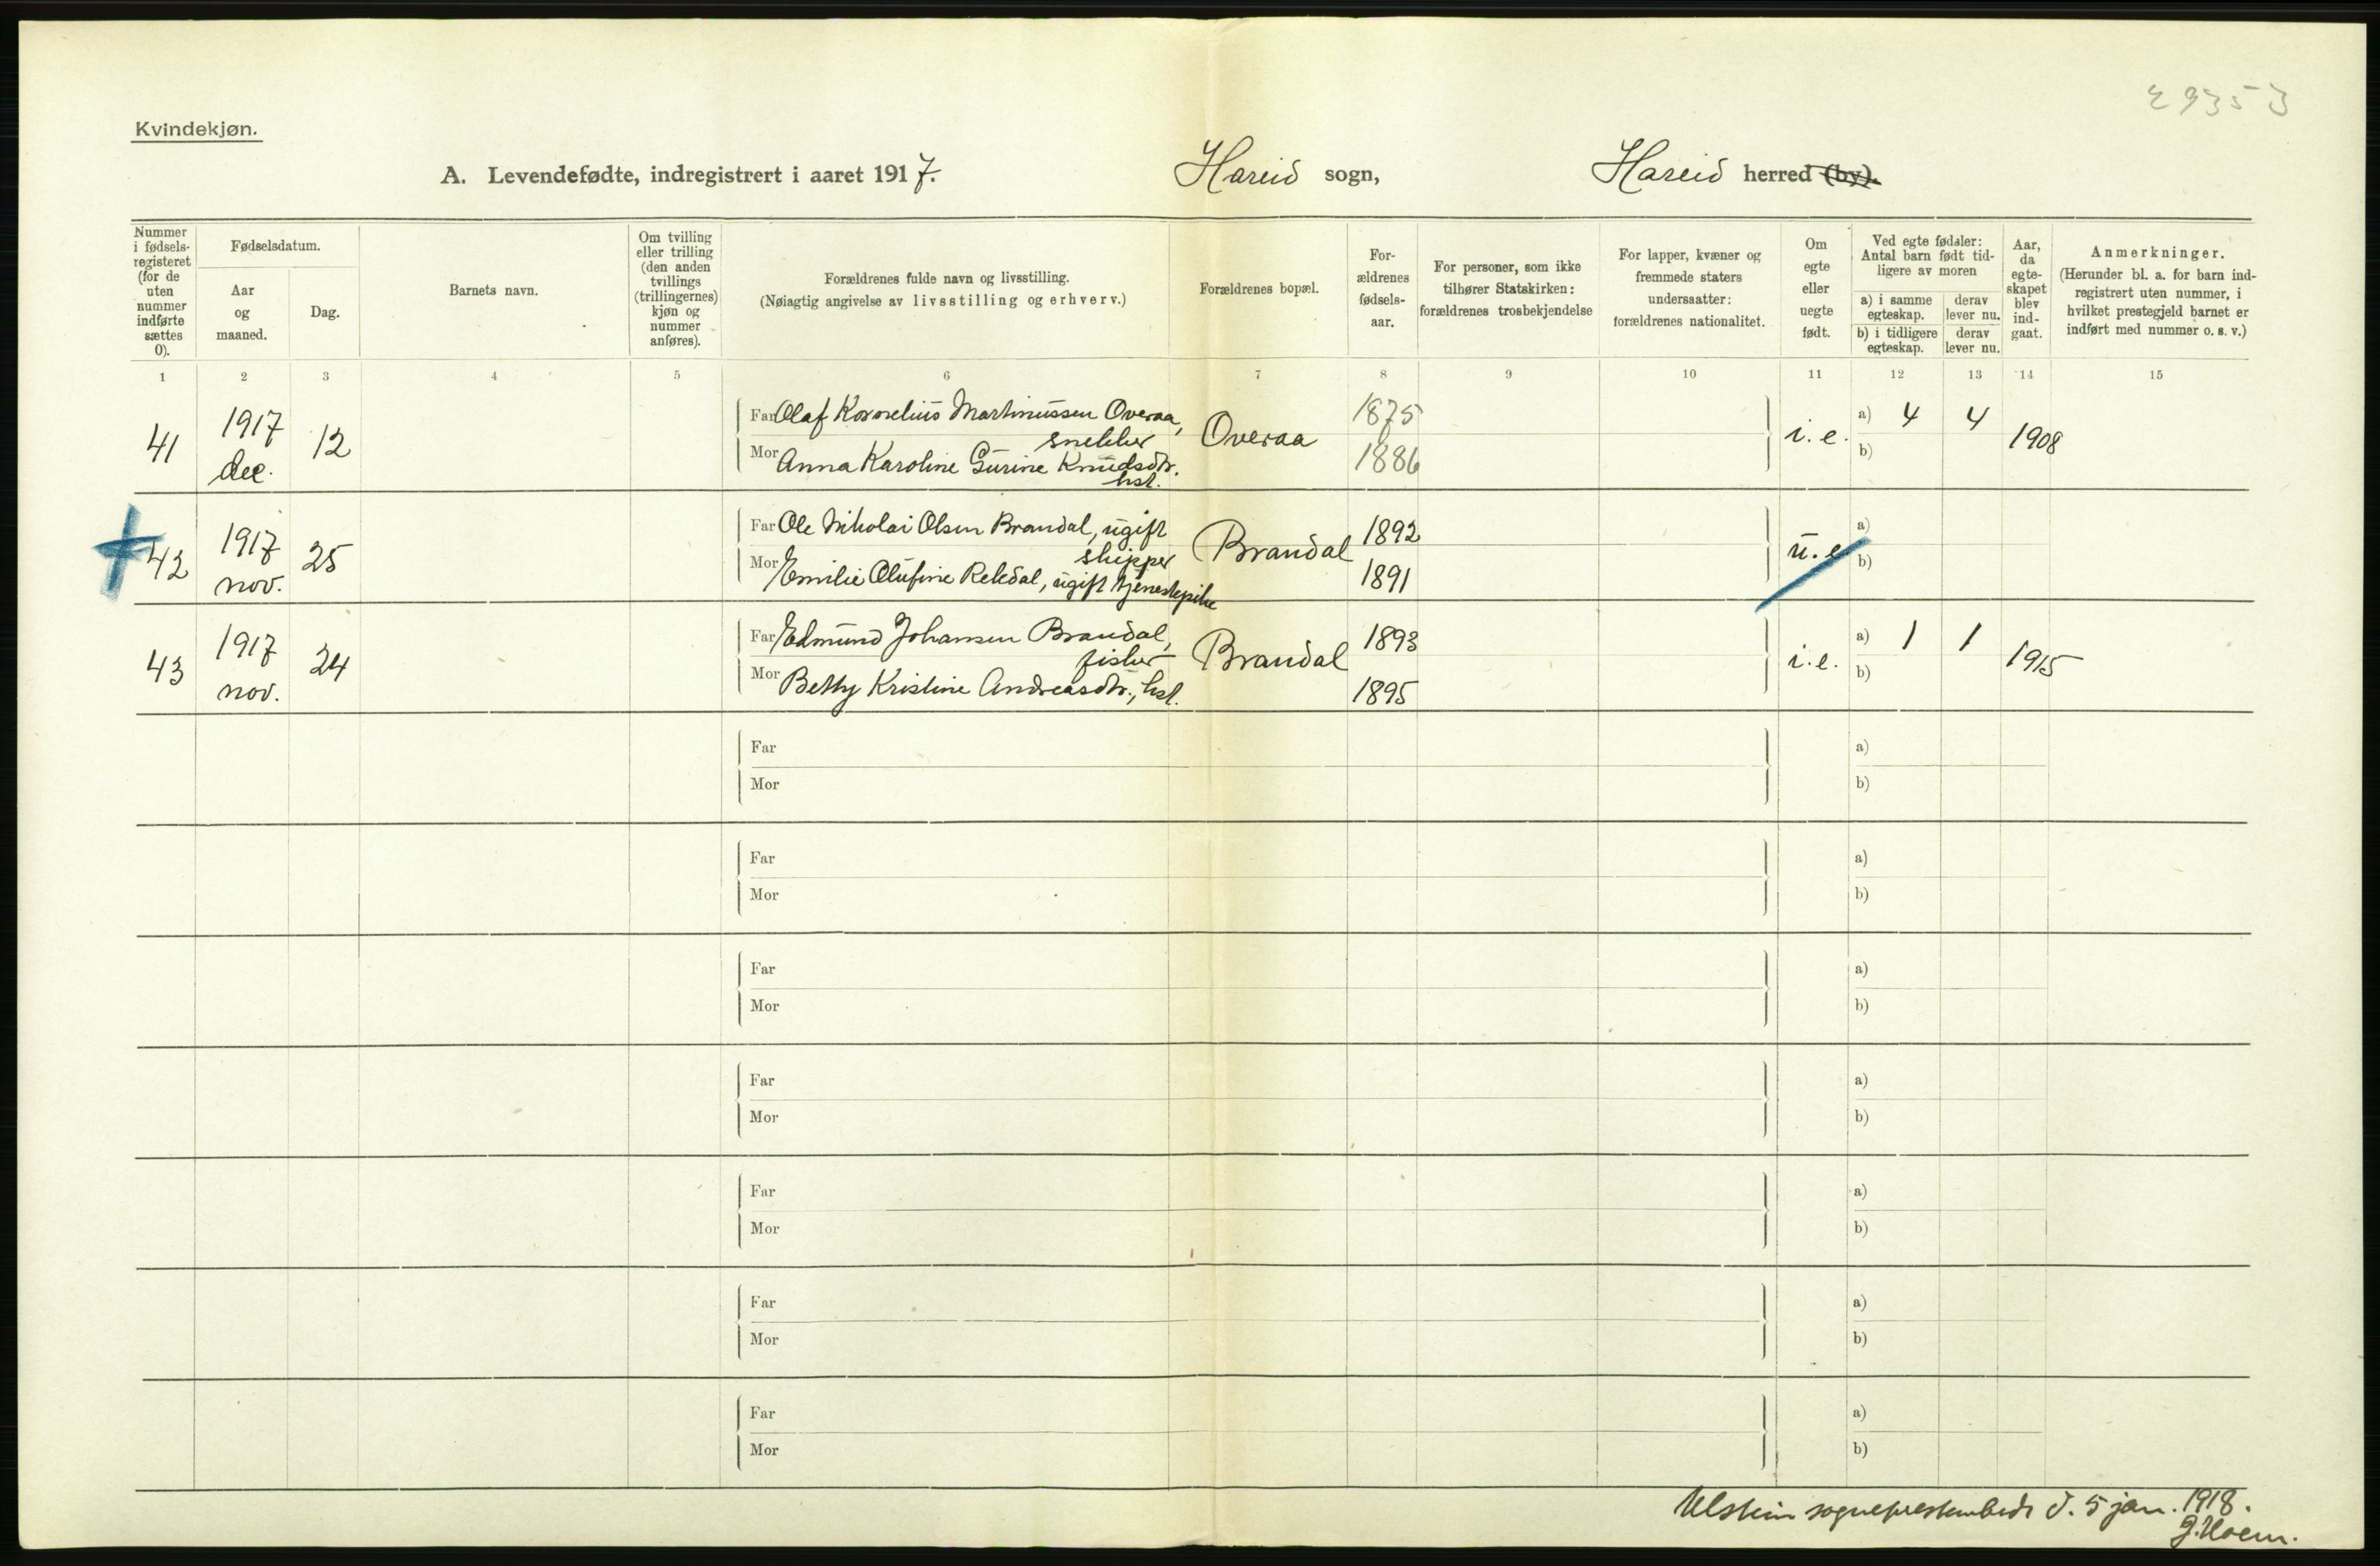 29353
Kvindekjøn.
A. Levendefødte, indregistrert i aaret 1917. Hareid sogn, Hareid herred (by).
Nummer i fødsels-registeret (for de uten nummer indførte sættes 0).
Fødselsdatum.
Aar og maaned.
Dag.
Barnets navn.
Om tvilling eller trilling (den anden tvillings (trillingernes) kjøn og nummer anføres).
Forældrenes fulde navn og livsstilling.
(Nøiagtig angivelse av livsstilling og erhverv.)
Forældrenes bopæl.
For-ældrenes fødsels-aar.
For personer, som ikke tilhører Statskirken: forældrenes trosbekjendelse
For lapper, kvæner og fremmede staters undersaatter: forældrenes nationalitet.
Om egte eller uegte født.
Ved egte fødsler: Antal barn født tid-ligere av moren
a) i samme egteskap.
derav lever nu.
b) i tidligere egteskap.
derav lever nu.
Aar, da egte-skapet blev ind-gaat.
Anmerkninger.
(Herunder bl. a. for barn ind-registrert uten nummer, i hvilket prestegjeld barnet er indført med nummer o. s. v.)
1 2 3 4 5 6 7 8 9 10 11 12 13 14 15
41 1917 dec. 12 Far Olaf Kornelius Martinussen Overaa, snekker Overaa 1875 i.e. a) 4 4 1908
Mor Anna Karoline Gurine Knudsdtr. hst. 1886 b)
42 1917 nov. 25 Far Ole Nikolai Olsen Brandal, ugift skipper Brandal 1892 u.e. a)
Mor Emilie Olufine Rekdal, ugift tjenestepike 1891 b)
43 1917 nov. 24 Far Edmund Johansen Brandal, fisker Brandal 1893 i.e. a) 1 1 1915
Mor Betty Kristine Andreasdtr., hst. 1895 b)
Far a)
Mor b)
Far a)
Mor b)
Far a)
Mor b)
Far a)
Mor b)
Far a)
Mor b)
Far a)
Mor b)
Far a)
Mor b)
Ulstein sogneprestembede d. 5 jan. 1918.